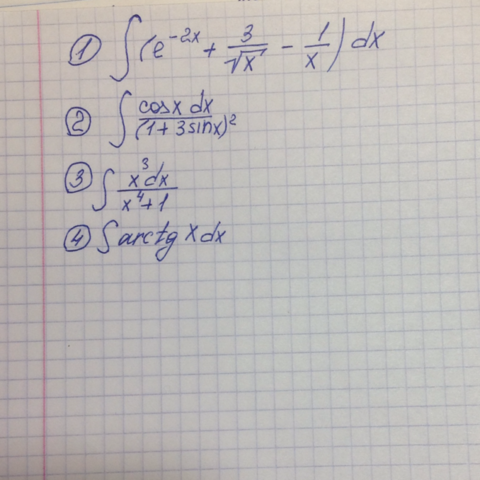 ① ∫(e⁻²ˣ + 3/√x - 1/x) dx
② ∫ cosx dx/(1+3sinx)²
③ ∫ x³dx/x⁴+1
④ ∫arctg x dx